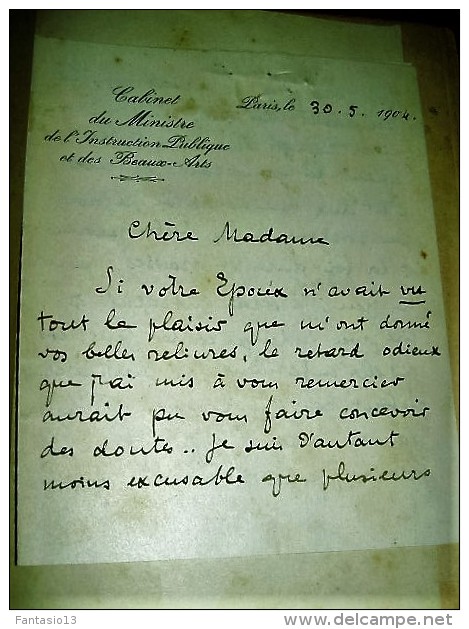 Cabinet
du Ministre
de l'Instruction Publique
et des Beaux-Arts
Paris, le 30.5.1904.
Chère Madame
Si votre Epoux n'avait vu
tout le plaisir que m'ont donné
vos belles reliures, le retard odieux
que j'ai mis à vous remercier
aurait pu vous faire concevoir
des doutes.. Je suis d'autant
moins excusable que plusieurs
Fantasio13
delcampe.net